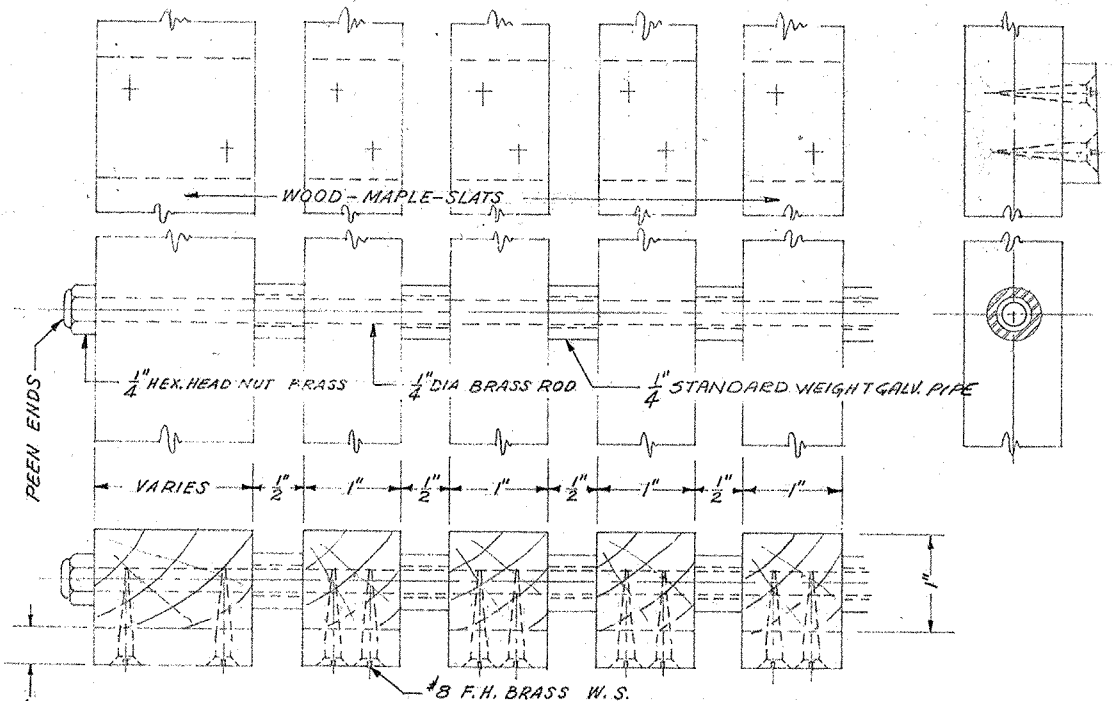 WOOD-MAPLE-SLATS
1/4" HEX. HEAD NUT BRASS
1/4" DIA BRASS ROD
1/4" STANDARD WEIGHT GALV. PIPE
PEEN ENDS
VARIES 1/2" 1" 1/2" 1" 1/2" 1" 1/2" 1"
1"
#8 F.H. BRASS W.S.